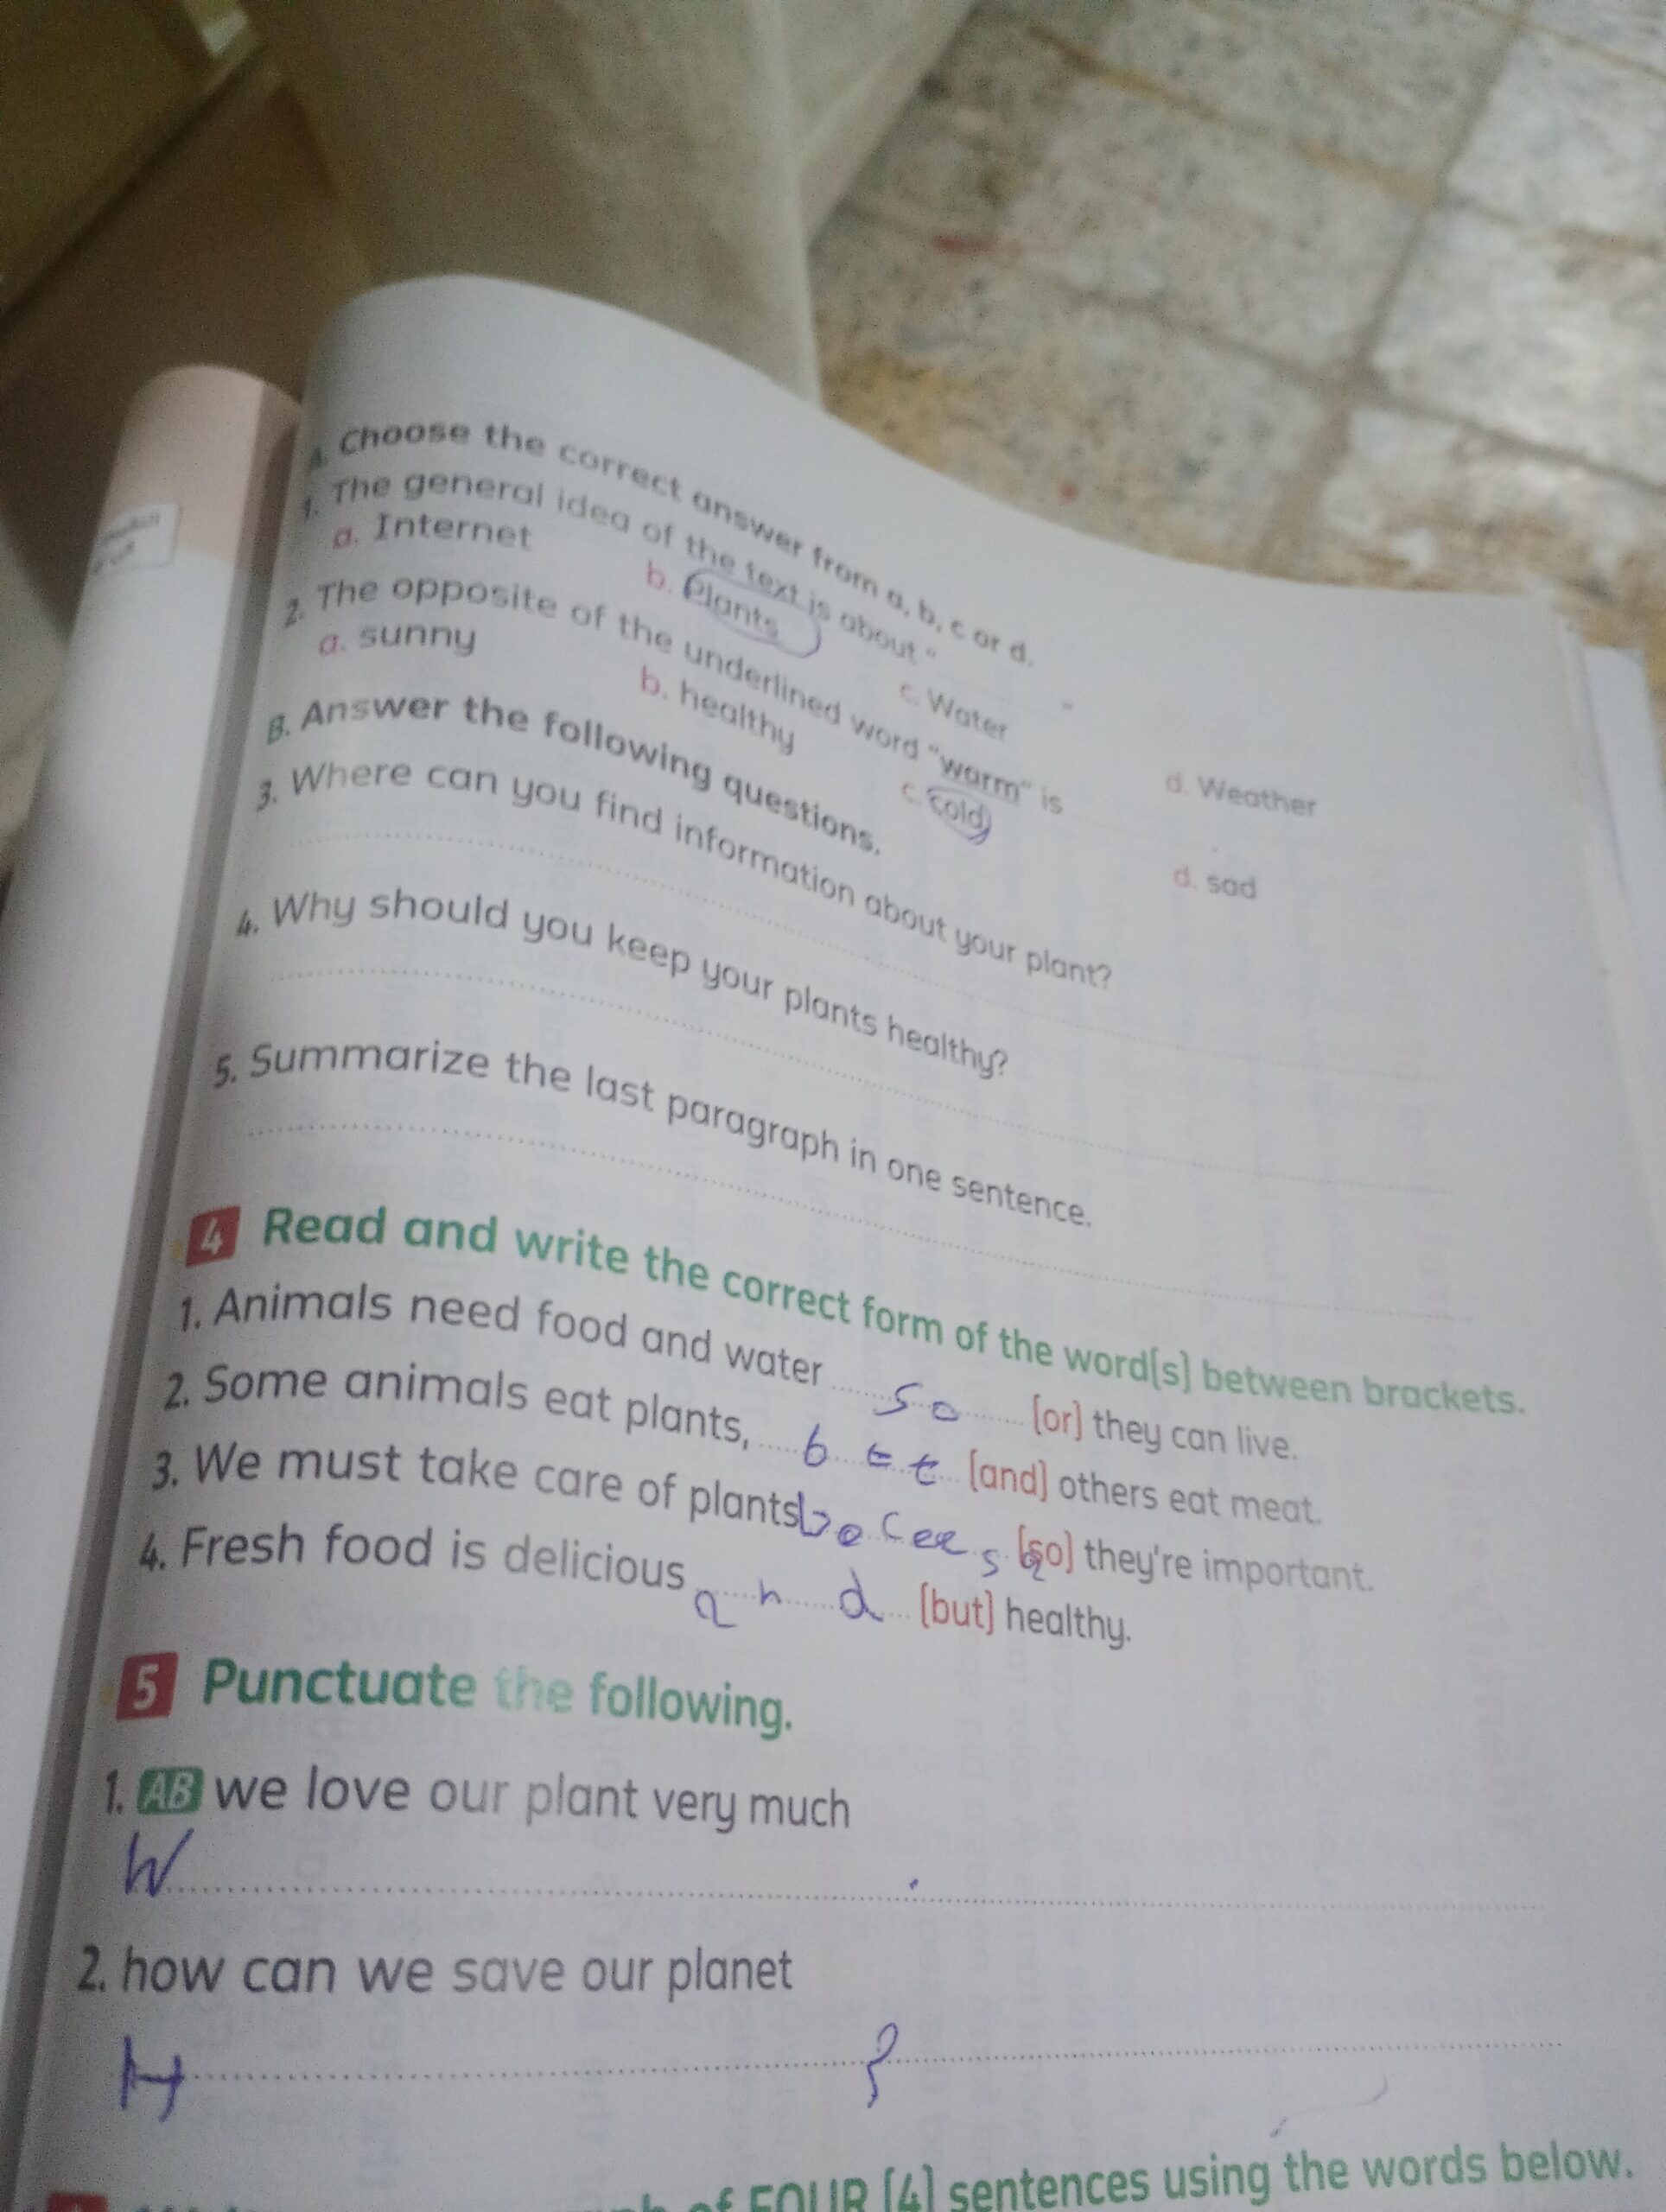 A. Choose the correct answer from a, b, c or d.
1. The general idea of the text is about "
"
a. Internet b. Plants c. Water d. Weather
2. The opposite of the underlined word "warm" is
a. sunny b. healthy c. cold d. sad
B. Answer the following questions.
3. Where can you find information about your plant?
4. Why should you keep your plants healthy?
5. Summarize the last paragraph in one sentence.
4 Read and write the correct form of the word(s) between brackets.
1. Animals need food and water so (or) they can live.
2. Some animals eat plants, (and) others eat meat.
3. We must take care of plants (so) they're important.
4. Fresh food is delicious and (but) healthy.
5 Punctuate the following.
1. AB we love our plant very much
W .
2. how can we save our planet
H ?
of FOUR (4) sentences using the words below.